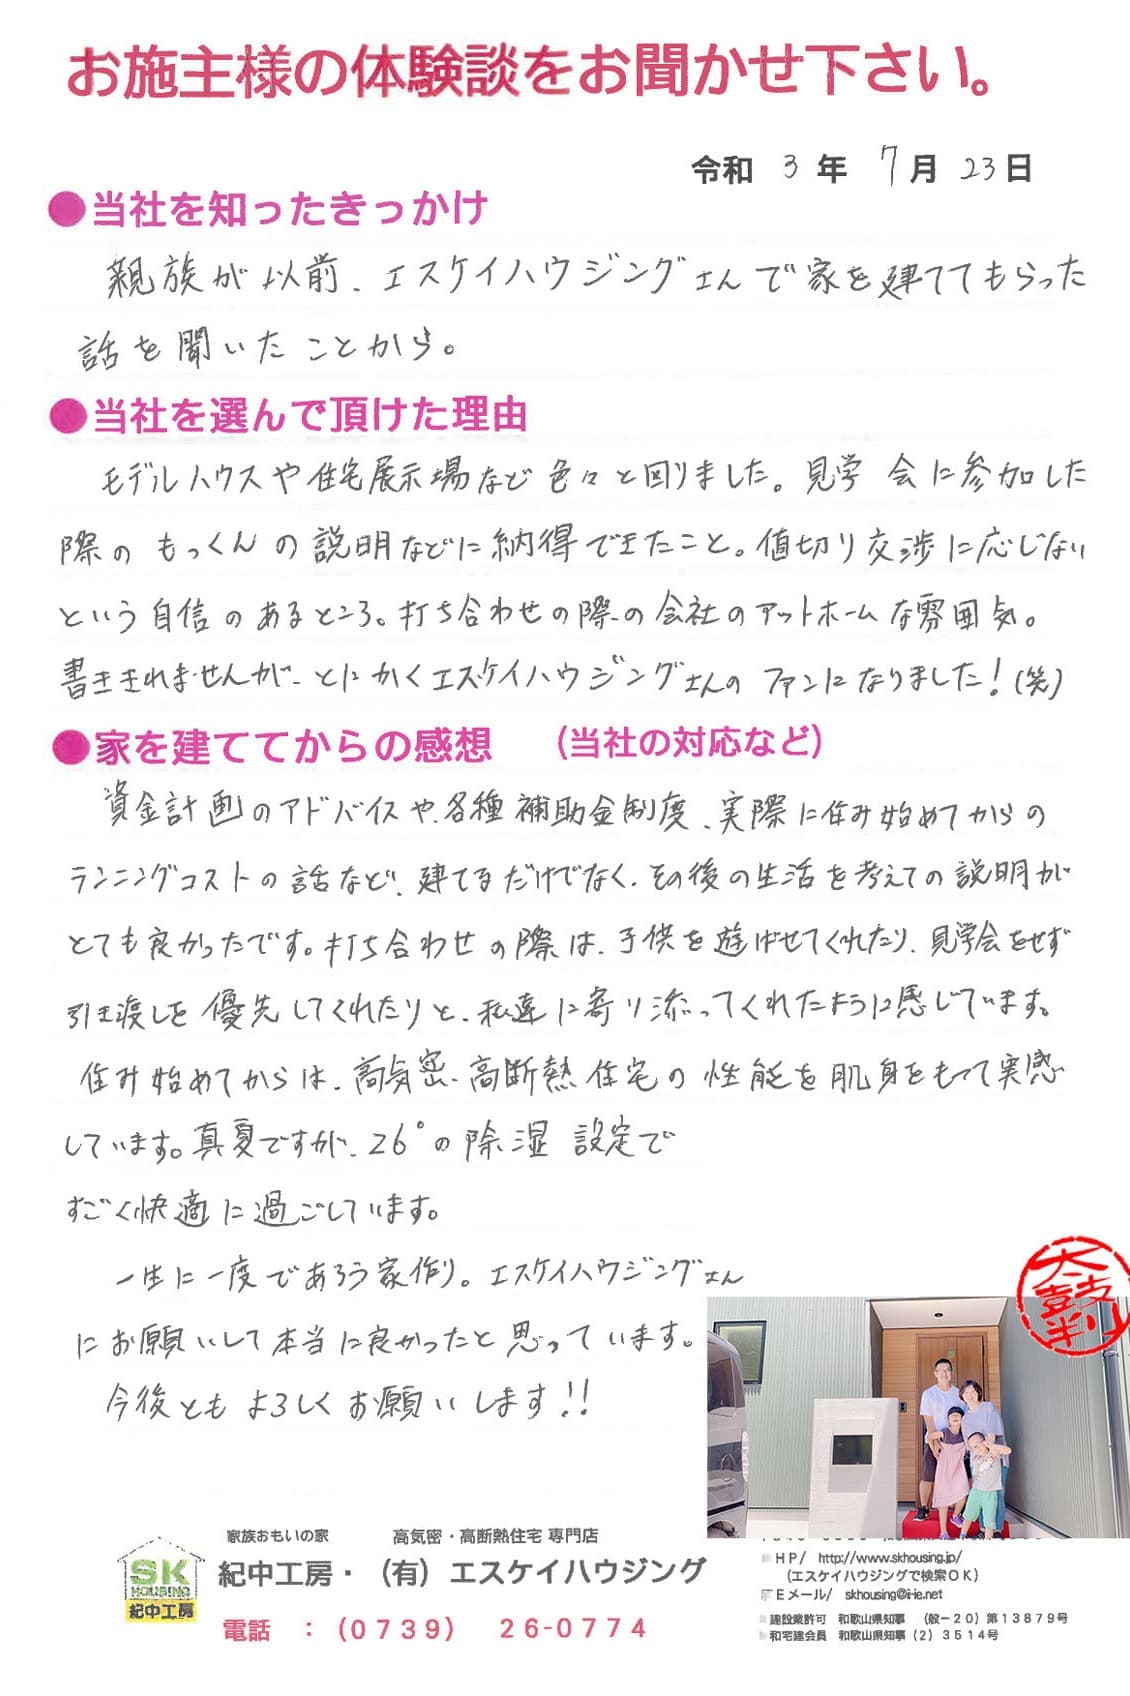 お施主様の体験談をお聞かせ下さい。
令和 3 年 7 月 23 日
●当社を知ったきっかけ
親族が以前、エスケイハウジングさんで家を建ててもらった
話を聞いたことから。
●当社を選んで頂けた理由
モデルハウスや住宅展示場など色々と回りました。見学会に参加した
際のもっくんの説明などに納得できたこと。値切り交渉に応じない
という自信のあるところ。打ち合わせの際の会社のアットホームな雰囲気。
書ききれませんが、とにかくエスケイハウジングさんのファンになりました!(笑)
●家を建ててからの感想 (当社の対応など)
資金計画のアドバイスや、各種補助金制度、実際に住み始めてからの
ランニングコストの話など、建てるだけでなく、その後の生活を考えての説明が
とても良かったです。打ち合わせの際は、子供を遊ばせてくれたり、見学会をせず
引き渡しを優先してくれたりと、私達に寄り添ってくれたように感じています。
住み始めてからは、高気密、高断熱住宅の性能を肌身をもって実感
しています。真夏ですが、26°の除湿設定で
すごく快適に過ごしています。
一生に一度であろう家作り。エスケイハウジングさん
にお願いして本当に良かったと思っています。
今後ともよろしくお願いします!!
太鼓判
家族おもいの家 高気密・高断熱住宅 専門店
SK
HOUSING
紀中工房
紀中工房・(有)エスケイハウジング
電話 : (0739) 26-0774
HP/ http://www.skhousing.jp/
(エスケイハウジングで検索OK)
Eメール/ skhousing@i-ie.net
建設業許可 和歌山県知事 (般-20)第13879号
和宅建会員 和歌山県知事(2)3514号